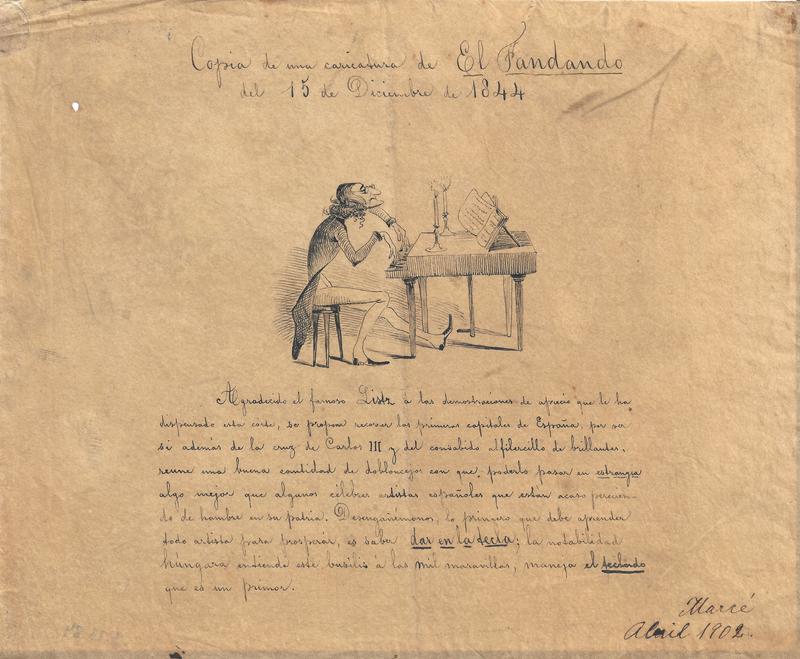 Copia de una caricatura de El Fandando
del 15 de Diciembre de 1844
Agradecido el famoso Listz à las demostraciones de aprecio que le ha
dispensado esta corte, se propone recorrer las primeras capitales de España, por ver
si además de la cruz de Carlos III y del consabido alfilercillo de brillantes,
reune una buena cantidad de dobloncejos con que poderlo pasar en estrangia
algo mejor que algunos célebres artistas españoles que están acaso perecien-
do de hambre en su patria. Desengañémonos, lo primero que debe aprender
todo artista para prosperar, es saber dar en la tecla; la notabilidad
húngara entiende este busilis a las mil maravillas, maneja el teclado
que es un primor.
Marcé
Abril 1902.